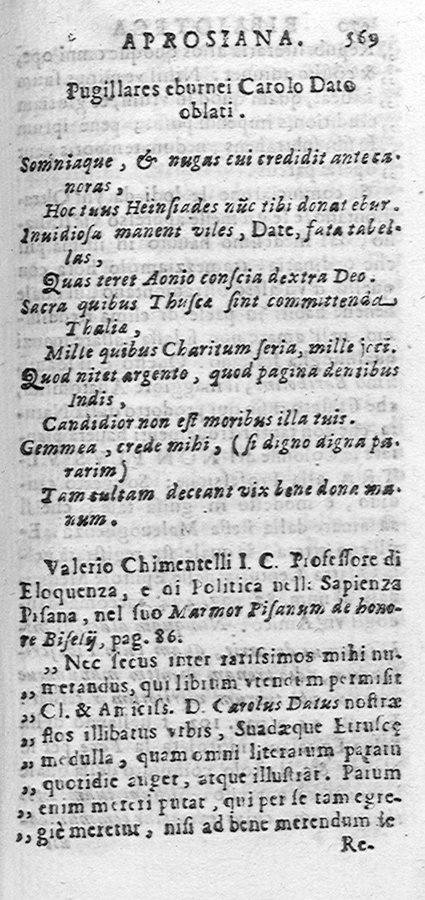 APROSIANA. 369
Pugillares eburnei Carolo Dato
oblati.
Somniaque, & nugas cui credidit ante ca-
noras,
Hoc tuus Heinsiades nũc tibi donat ebur.
Inuidiosa manent viles, Date, fata tabel-
las,
Quas teret Aonio conscia dextra Deo.
Sacra quibus Thuscæ sint committenda
Thaliæ,
Mille quibus Charitum seria, mille joci.
Quod nitet argento, quod pagina dentibus
Indis,
Candidior non est moribus illa tuis.
Gemmea, crede mihi, (si digno digna pa-
rarim)
Tam cultam deceant vix bene dona ma-
num.
Valerio Chimentelli I. C. Professore di
Eloquenza, e di Politica nell: Sapienza
Pisana, nel suo Marmor Pisanum de hono-
re Biselij, pag. 86.
„ Nec secus inter rarissimos mihi nu-
„ merandus, qui librum vtendum permisit
„ Cl. & Amiciss. D. Carolus Datus nostræ
„ flos illibatus vrbis, Suadæque Etruscę
„ medulla, quam omni literarum paratu
„ quotidie auget, atque illustrat. Parum
„ enim mereri putat, qui per se tam egre-
„ giè meretur, nisi ad bene merendum se
Re-